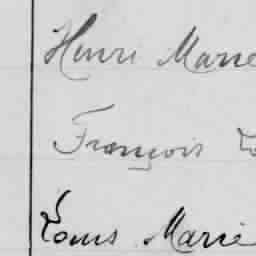 Henri Marie
François
Louis Marie